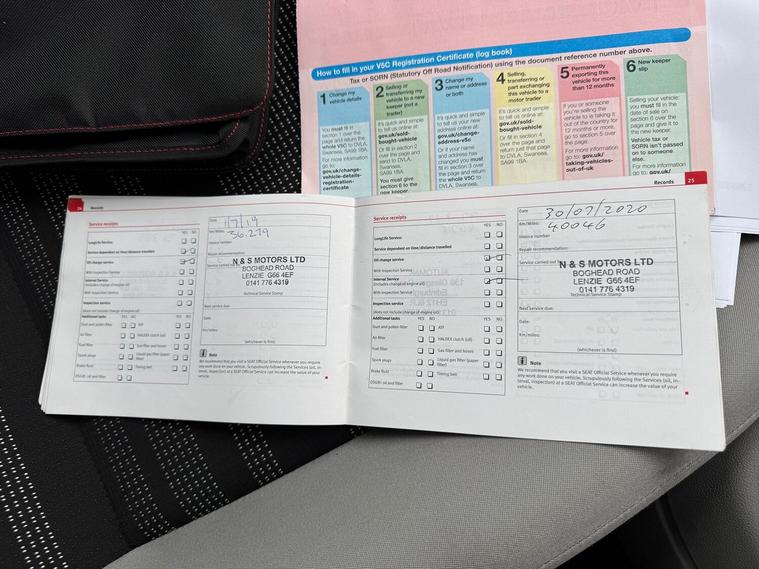 How to fill in your V5C Registration Certificate (log book)
Tax or SORN (Statutory Off Road Notification) using the document reference number above.
1 Change my vehicle details
You must fill in
section 1 over the
page and return the
whole V5C to DVLA,
Swansea, SA99 1BA.
For more information
go to:
gov.uk/change-
vehicle-details-
registration-
certificate
2 Selling or
transferring my
vehicle to a new
keeper (not a
trader)
It's quick and simple
to tell us online at:
gov.uk/sold-
bought-vehicle
Or fill in section 2
over the page and
send to DVLA,
Swansea,
SA99 1BA.
You must give
section 6 to the
new keeper.
3 Change my
name or address
or both
It's quick and simple
to tell us your new
address online at:
gov.uk/change-
address-v5c
Or if your name
and address has
changed you must
fill in section 3 over
the page and return
the whole V5C to
DVLA, Swansea,
4 Selling,
transferring or part
exchanging this
vehicle to a
motor trader
It's quick and simple
to tell us online at:
gov.uk/sold-
bought-vehicle
Or fill in section 4
over the page and
return just that page
to DVLA, Swansea,
SA99 1BD.
5 Permanently
exporting this
vehicle for more
than 12 months
If you or someone
you're selling the
vehicle to is taking it
out of the country for
12 months or more,
go to section 5 over
the page.
For more information
go to: gov.uk/
taking-vehicles-
out-of-uk
6 New keeper
slip
Selling your vehicle:
you must fill in the
date of sale on
section 6 over the
page and give it to
the new keeper.
Vehicle tax or
SORN isn't passed
on to someone
else.
For more information
go to: gov.uk/
Records
Service receipts
LongLife Service
Service dependent on time/distance travelled
Oil change service
With Inspection Service
Interval Service
(includes change of engine oil)
With Inspection Service
Inspection service
(does not include change of engine oil)
YES NO
Additional tasks YES NO
YES NO
Dust and pollen filter
ATF
Air filter
HALDEX clutch (oil)
Fuel filter
Gas filter and hoses
Spark plugs
Liquid gas filter (paper filter)
Brake fluid
Timing belt
DSG®: oil and filter
Date: 1/7/19
Km/Miles: 36.279
Invoice number:
Repair recommendation:
Service carried out
N & S MOTORS LTD
BOGHEAD ROAD
LENZIE G66 4EF
0141 776 4319
Technical Service Stamp
Next service due:
Date:
Km/miles:
(whichever is first)
i Note
We recommend that you visit a SEAT Official Service whenever you require
any work done on your vehicle. Scrupulously following the Services (oil, in-
terval, inspection) at a SEAT Official Service can increase the value of your
vehicle.
Records 25
Service receipts
YES NO
LongLife Service
Service dependent on time/distance travelled
Oil change service
With Inspection Service
Interval Service
(includes change of engine oil)
With Inspection Service
Inspection service
(does not include change of engine oil)
Additional tasks YES NO
YES NO
Dust and pollen filter
ATF
Air filter
HALDEX clutch (oil)
Fuel filter
Gas filter and hoses
Spark plugs
Liquid gas filter (paper filter)
Brake fluid
Timing belt
DSG®: oil and filter
Date: 30/07/2020
Km/Miles: 40046
Invoice number
Repair recommendation:
Service carried out
N & S MOTORS LTD
BOGHEAD ROAD
LENZIE G66 4EF
0141 776 4319
Technical Service Stamp
Next service due:
Date:
Km/miles:
(whichever is first)
i Note
We recommend that you visit a SEAT Official Service whenever you require
any work done on your vehicle. Scrupulously following the Services (oil, in-
terval, inspection) at a SEAT Official Service can increase the value of your
vehicle.